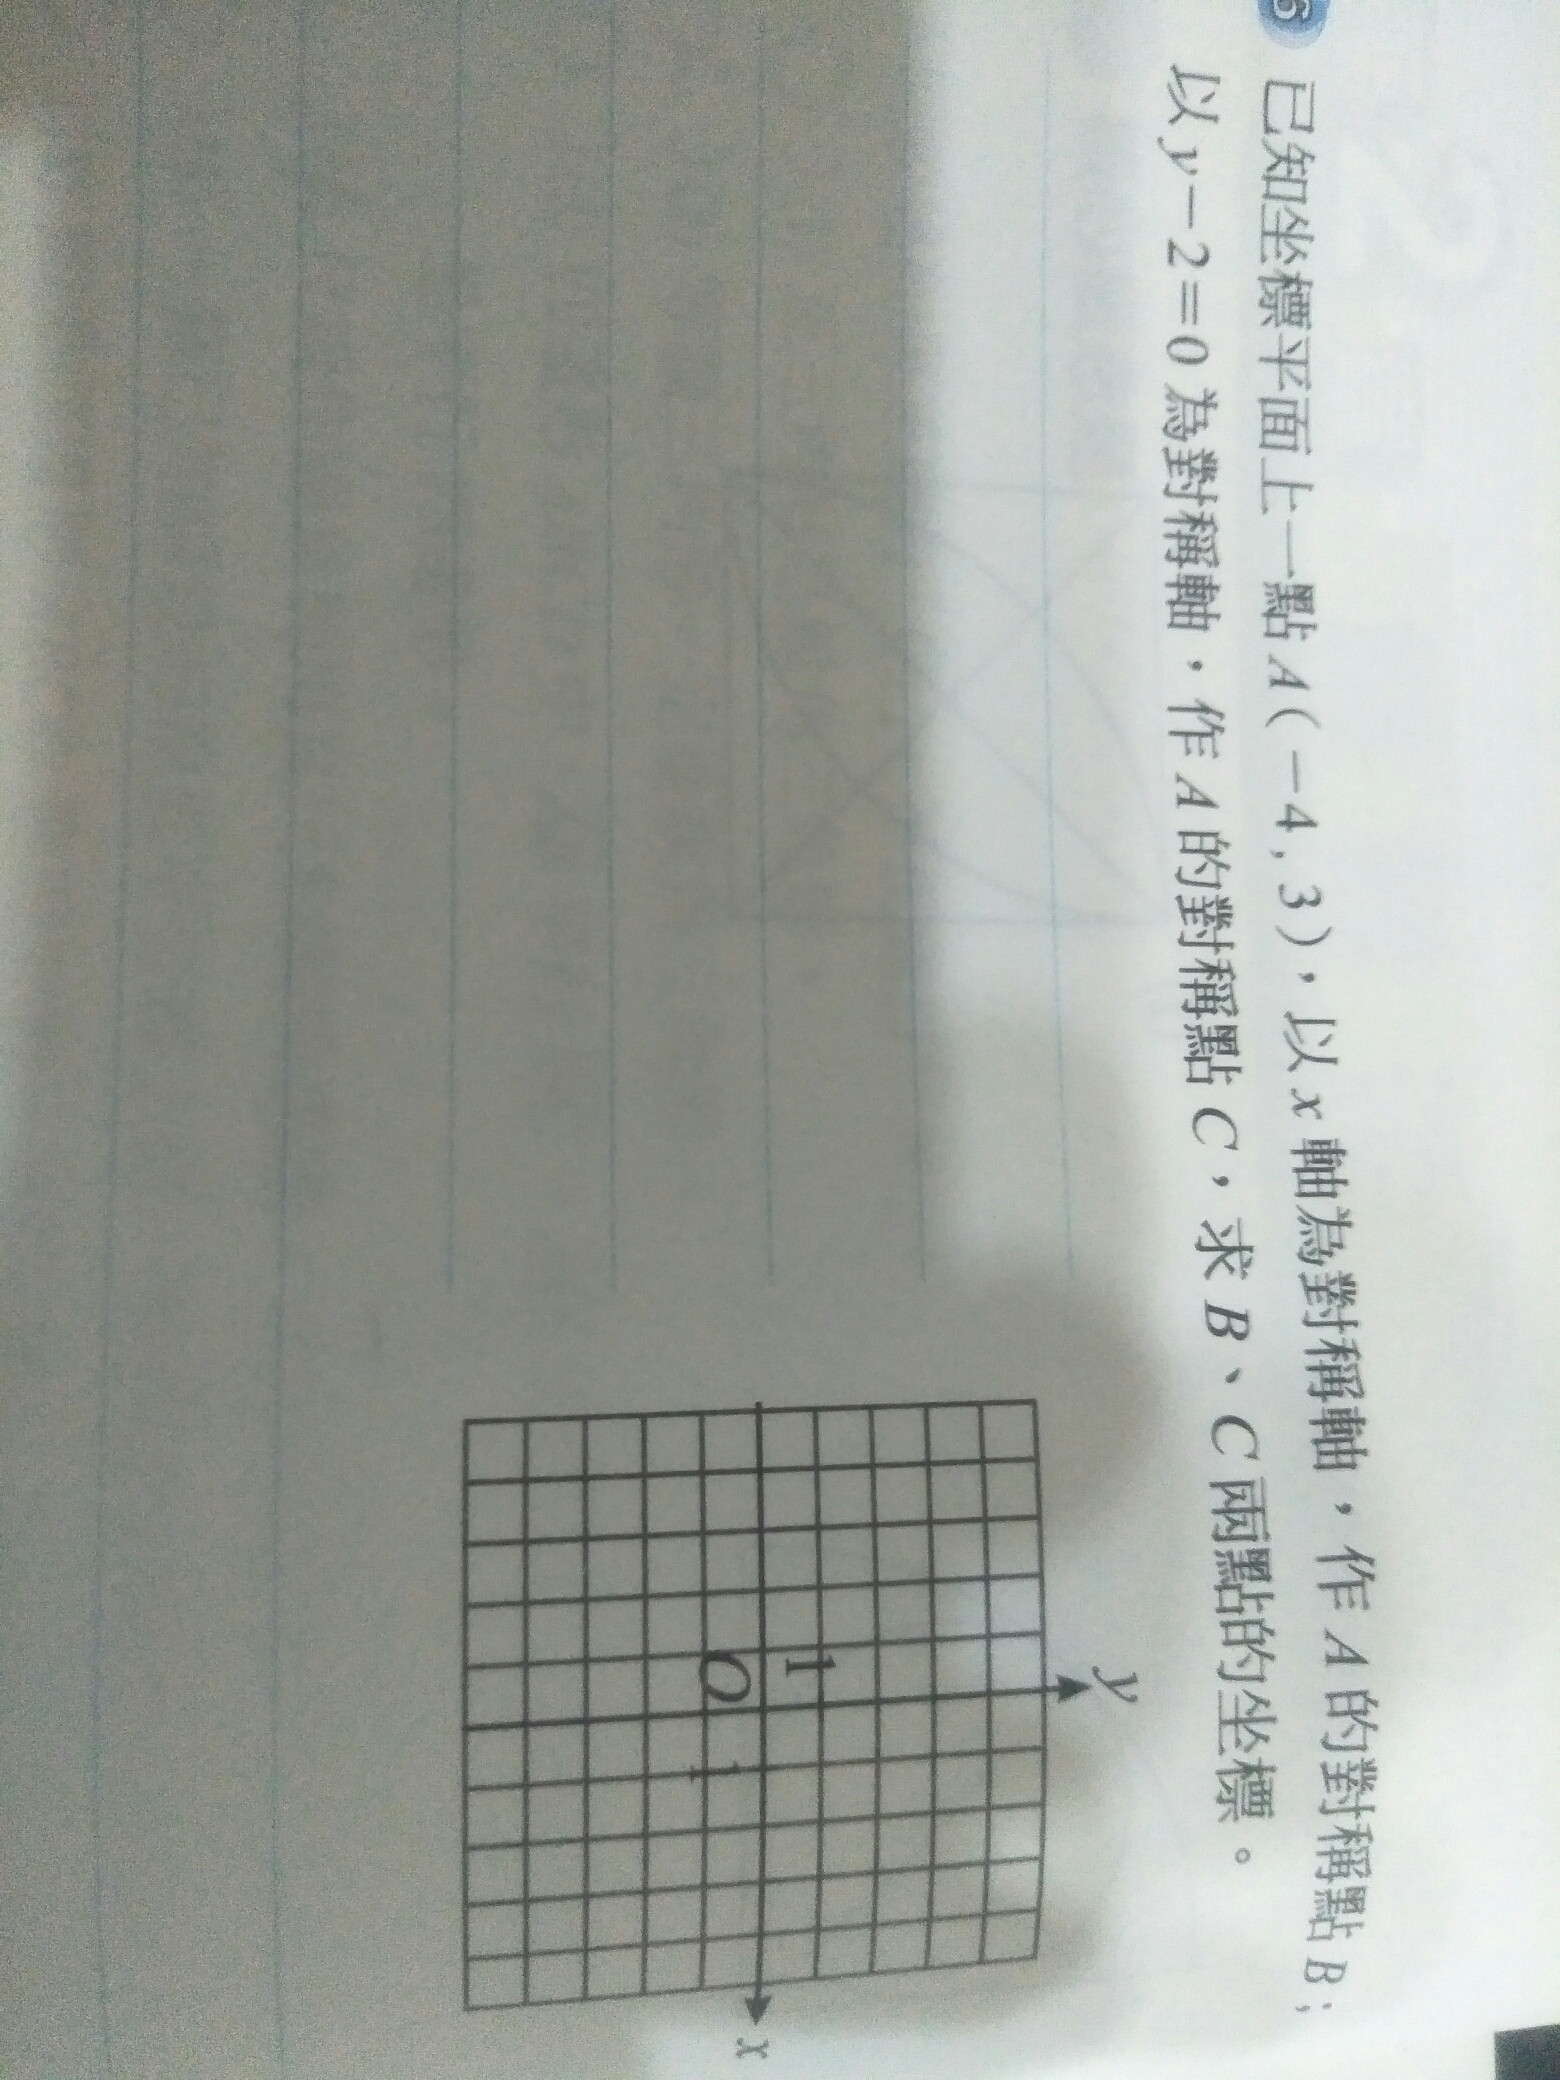 6 已知坐標平面上一點 A(-4,3)，以 x 軸為對稱軸，作 A 的對稱點 B；
以 y-2=0 為對稱軸，作 A 的對稱點 C，求 B、C 兩點的坐標。
y
1
O
1
x